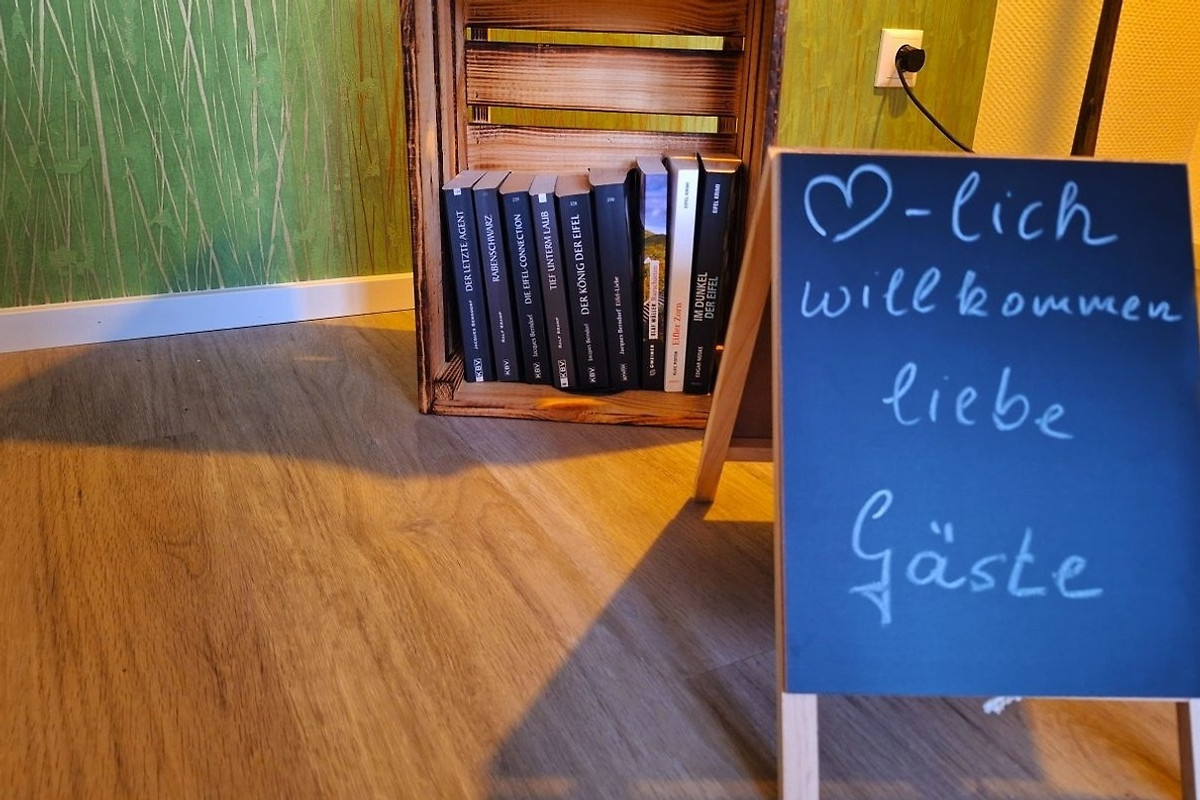 ♡-lich
willkommen
liebe
Gäste
JACQUES BERNDORF DER LETZTE AGENT
KBV
RALF KRAMP RABENSCHWARZ
KBV
Jacques Berndorf DIE EIFEL-CONNECTION
KBV
RALF KRAMP TIEF UNTERM LAUB
KBV
Jacques Berndorf DER KÖNIG DER EIFEL
KBV
Jacques Berndorf Eifel-Liebe
GMEINER
Eifler Zorn
EIFEL KRIMI
IM DUNKEL
DER EIFEL
EIFEL KRIMI